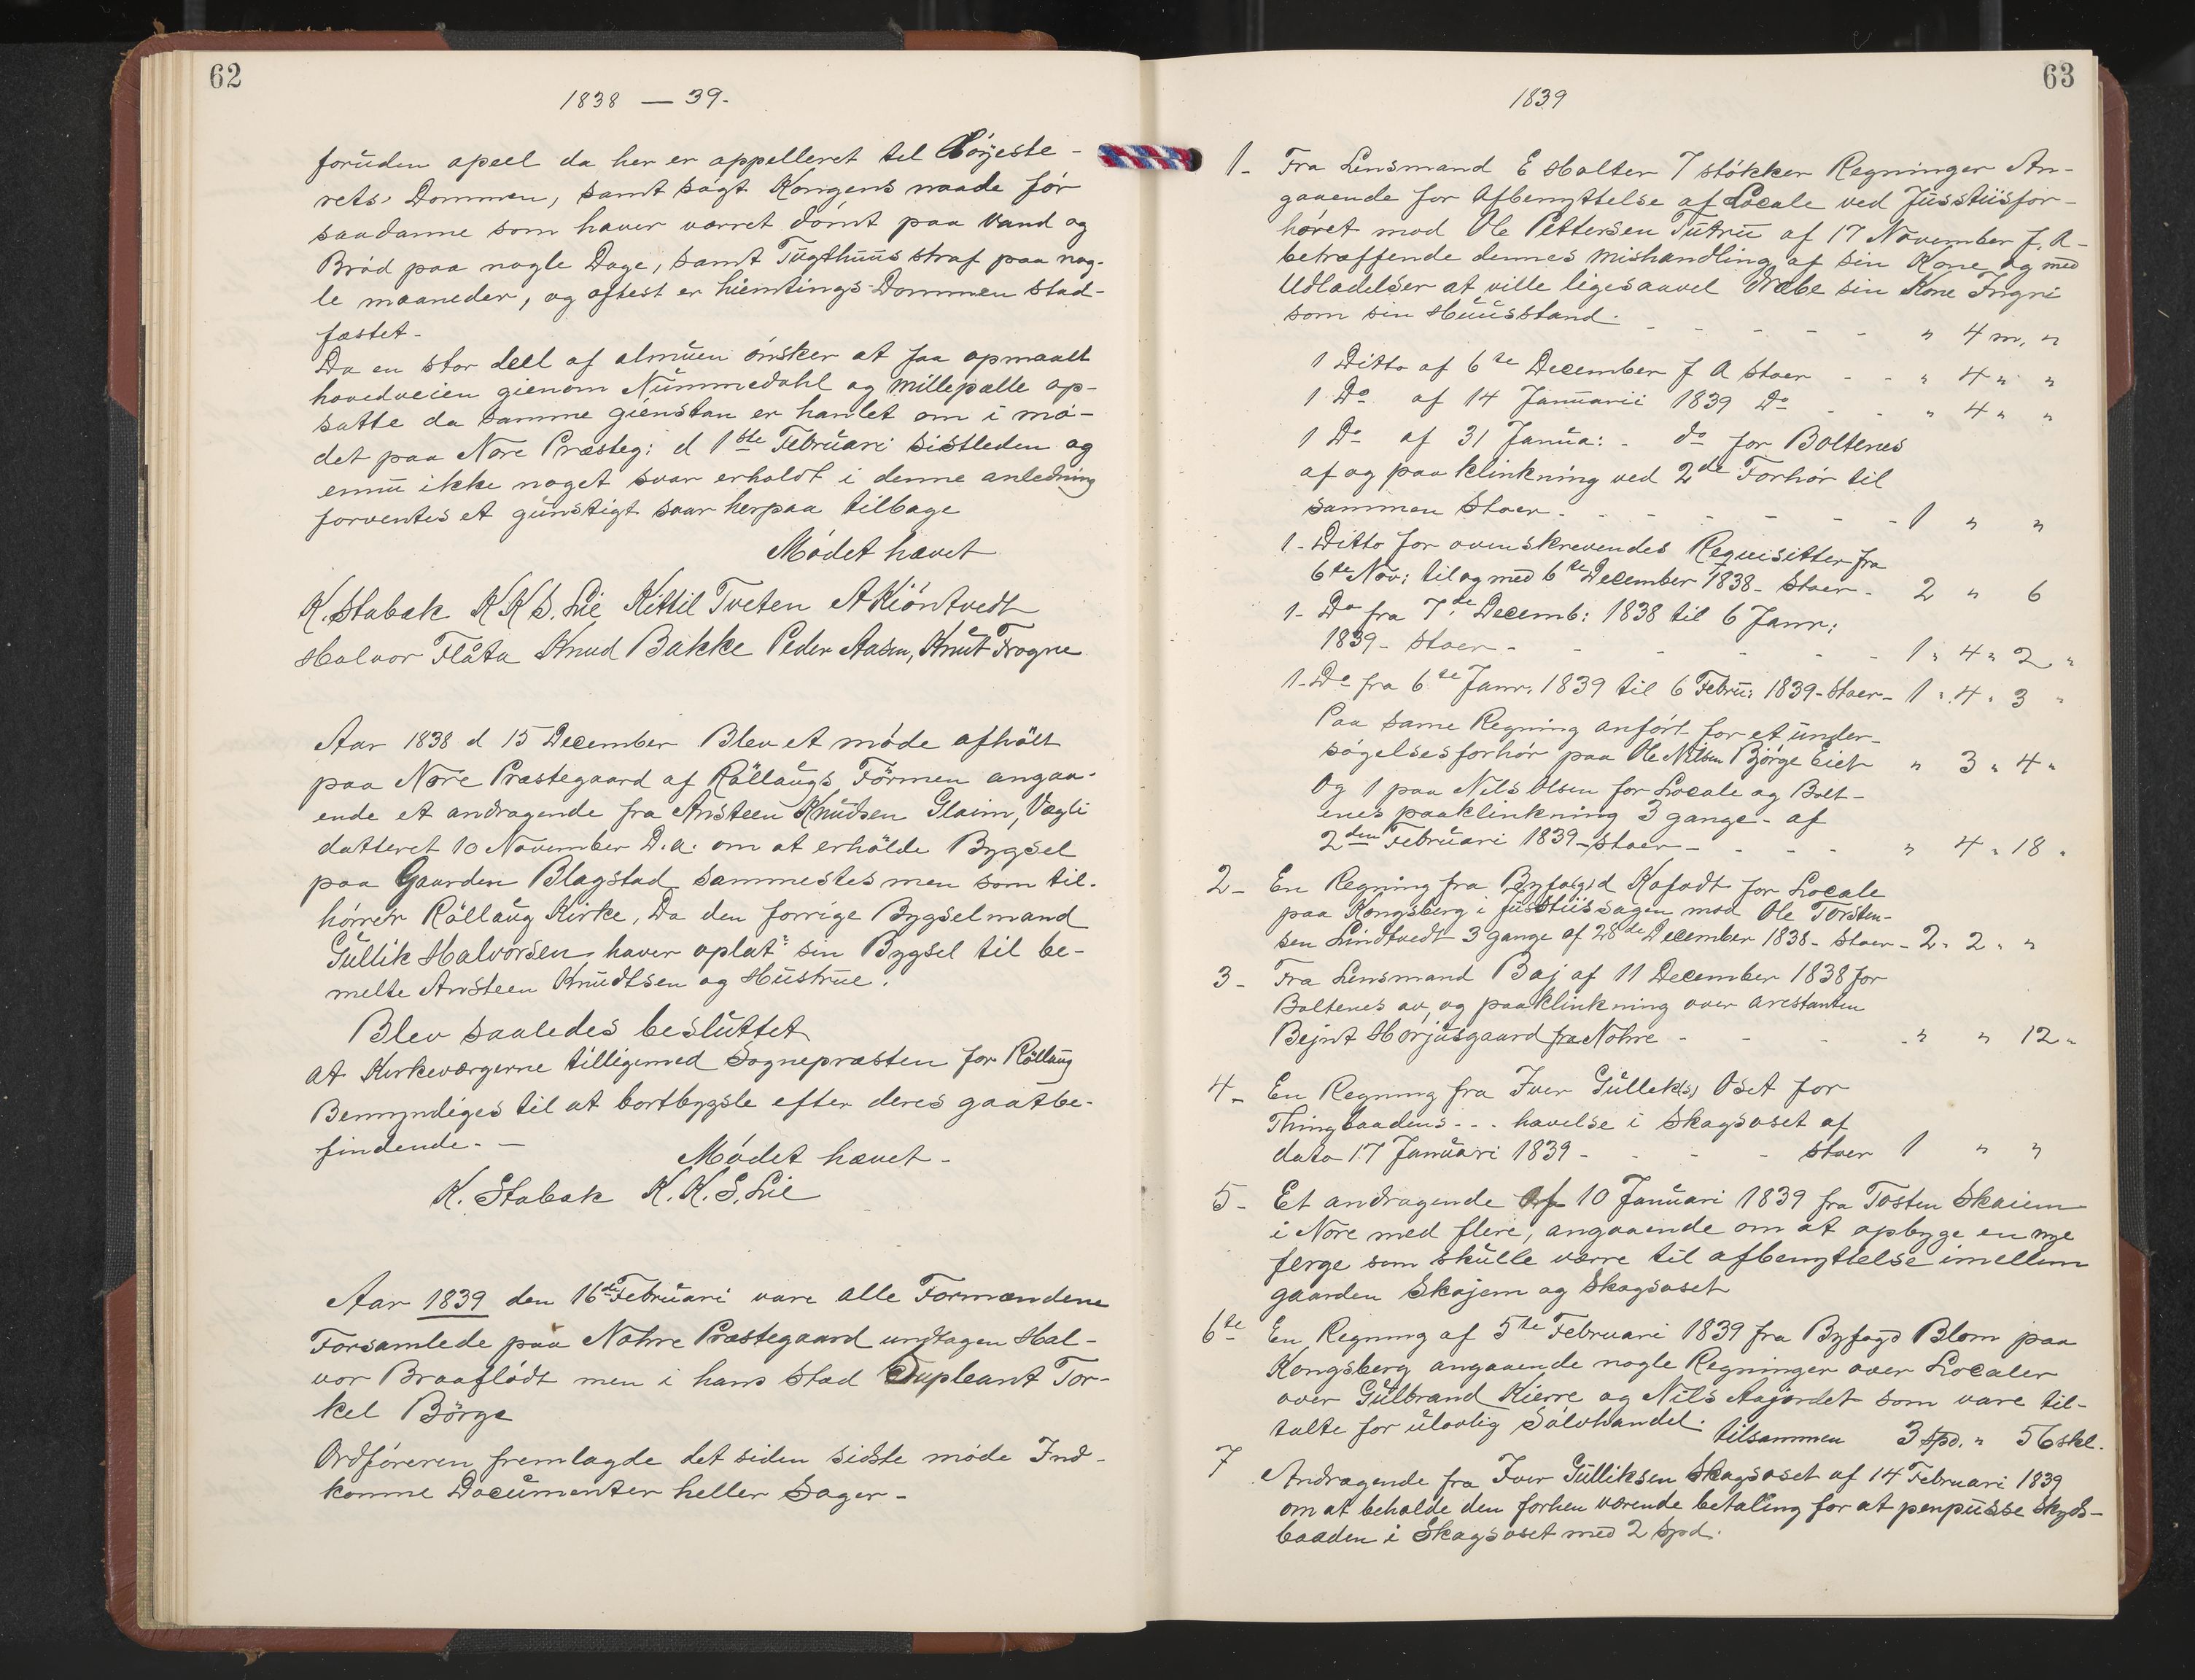 62
1838 — 39.
foruden apeel da her er appelleret til Höyeste-
rets, Dommen, samt søgt Kongens naade før
saadanne som haver værret dömt paa Vand og
Bröd paa nogle Dage, samt Tugthuus straf paa nog-
le maaneder, og oftest er hiemtings-Dommen stad-
fæstet.
Da en stor deel af almuen önsker at faa opmaalt
hovedveien gienom Nummedahl og Millepælle op-
satte da samme gienstan er hanlet om i mö-
det paa Nore Præsteg: d 1ste Februari sistleden og
ennu ikke noget svar erholdt i denne anledning
forventes et günstigt svar herpaa tilbage
Mödet hævet
K. Stabak K K S. Lie Kittil Tveten A Kiöntvedt
Halvor Flåta Knud Bakke Peder Aasen, Knut Frogne
Aar 1838 d 15 December Blev et möde afhölt
paa Nore Præstegaard af Röllaugs Förmen angaa-
ende et andragende fra Ansteen Knudsen Glaim, Vægli
datteret 10 November D.a. om at erhölde Bygsel
paa Gaarden Blagstad sammestes men som til-
hörrer Röllaug Kirke, Da den forrige Bygselmand
Gullik Halvorsen haver oplat: sin Bygsel til be-
melte Ansteen Knudtsen og Hustrue.
Blev saaledes besluttet
At Kirkeværgerne tilligemed Sognepræsten for Röllaug
Bemyndiges til at bortbygsle efter deres gaatbe-
findende. —
Mödet hævet -
K. Stabak K. K. S. Lie
Aar 1839 den 16de Februari vare alle Formændene
Forsamlede paa Nohre Præstegaard undtagen Hal-
vor Braaflödt men i hans Stad Supleant Tor-
kel Börge
Ordföreren fremlagde det siden sidste möde Ind-
komne Documenter heller Sager -
63
1839
1- Fra Lensmand E Holter 7 stökker Regninger An-
gaaende for Afbenyttelse af Locale ved Jusstiisfor-
höret mod Ole Pettersen Tutru af 17 November f. A-
betræffende dennes mishandling af sin Kone og med
Udladelser at ville ligesaavel Dræbe sin Kone Ingri
som sin Huusstand. - - - - - " 4 m, "
1 Ditto af 6te December f A stoer - - " 4 " "
1 Do af 14 Januarii 1839 Do - - " 4 " "
1 Do af 31 Janua: - do for Boltenes
af og paa klinkning ved 2de Forhör til
sammen stoer - - - - - - - 1 " "
1- Ditto for ovenskrevendes Requisitter fra
6te Nov: til og med 6te December 1838 - stoer - 2 " 6
1- Do fra 7de Decemb: 1838 til 6 Janr:
1839 - stoer - - - - - - 1 " 4 " 2 "
1- Do fra 6te Janr. 1839 til 6 Febru: 1839 - stoer - 1 " 4 " 3 "
Paa same Regning anfört for et under-
sögelsesforhör paa Ole Nilsen Björge Eiet " 3 " 4 "
Og 1 paa Nils Olsen for Locale og Bolt-
enes paaklinkning 3 gange - af
2den Februari 1839 - stoer - - - - " 4 " 18 "
2- En Regning fra Byfo(g)d Kafodt for Locale
paa Kongsberg i Jusstiissagen mod Ole Torsten-
sen Lindtvedt 3 gange af 28de December 1838 - stoer - 2 " 2 " "
3- Fra Lensmand Baj af 11 December 1838 for
Boltenes av, og paaklinkning over arestanten
Bejnt Horjusgaard fra Nohre - - - " " 12 "
4- En Regning fra Iver Gullek(s) Oset for
Thingbaadens - - - havelse i Skagsoset af
dato 17 Januari 1839 - - - - stoer 1 " "
5- Et andragende Af 10 Januari 1839 fra Tosten Skaiem
i Nore med flere, angaaende om at opbyge en nye
ferge som skulle værre til afbenyttelse imellem
gaarden Skajem og Skagsoset
6te En Regning af 5te Februari 1839 fra Byfogd Blom paa
Kongsberg angaaende nogle Regninger over Localer
over Gulbrand Kierre og Nils Aajordet som vare til-
talte for ulovlig Sölvhandel. tilsammen 3 spd. " 56 skl.
7 Andragende fra Iver Gulliksen Skagsoset af 14 Februari 1839
om at beholde den forhen værende betaling for at penpusse Skyds-
baaden i Skagsoset med 2 Spd.